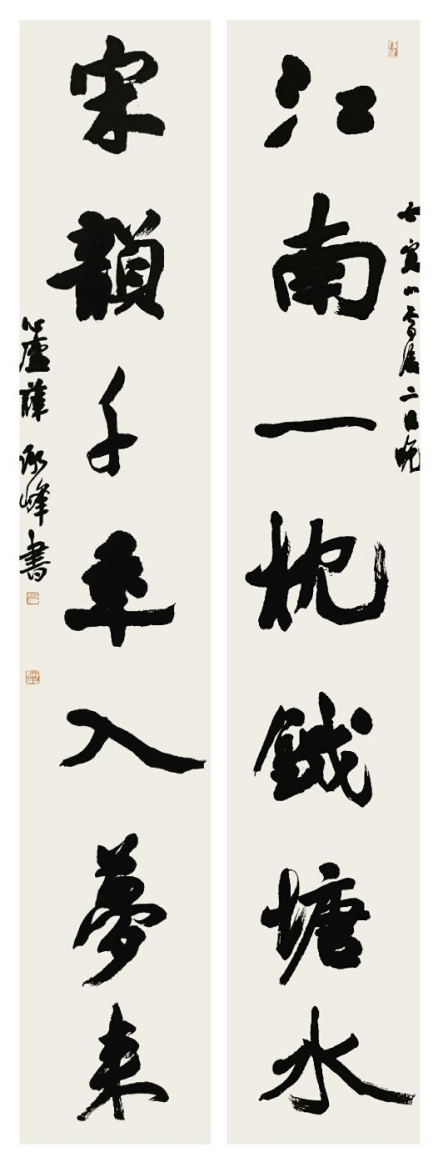 江南一枕錢塘水
宋韻千年入夢來
小雪後二日晚
峰書